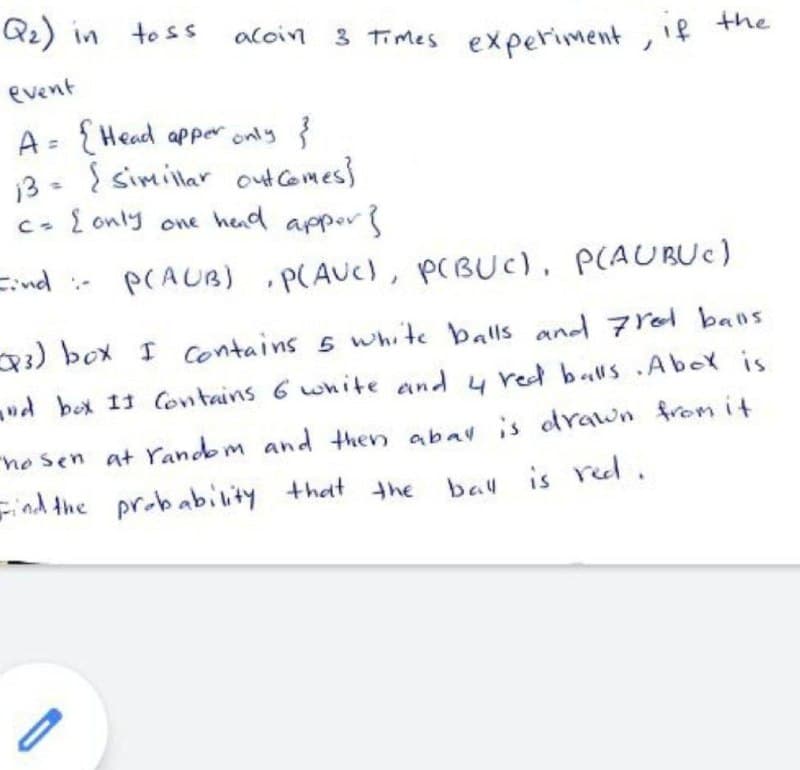 Q2) in toss acoin 3 Times experiment , if the
event
A = { Head apper only }
B = { simillar outComes}
C = { only one head apper }
Find :- P(AUB) , P(AUC) , P(BUC) , P(AUBUC)
Q3) box I Contains 5 white balls and 7 red balls
and box II Contains 6 white and 4 red balls . A box is
chosen at random and then aball is drawn from it
Find the probability that the ball is red .